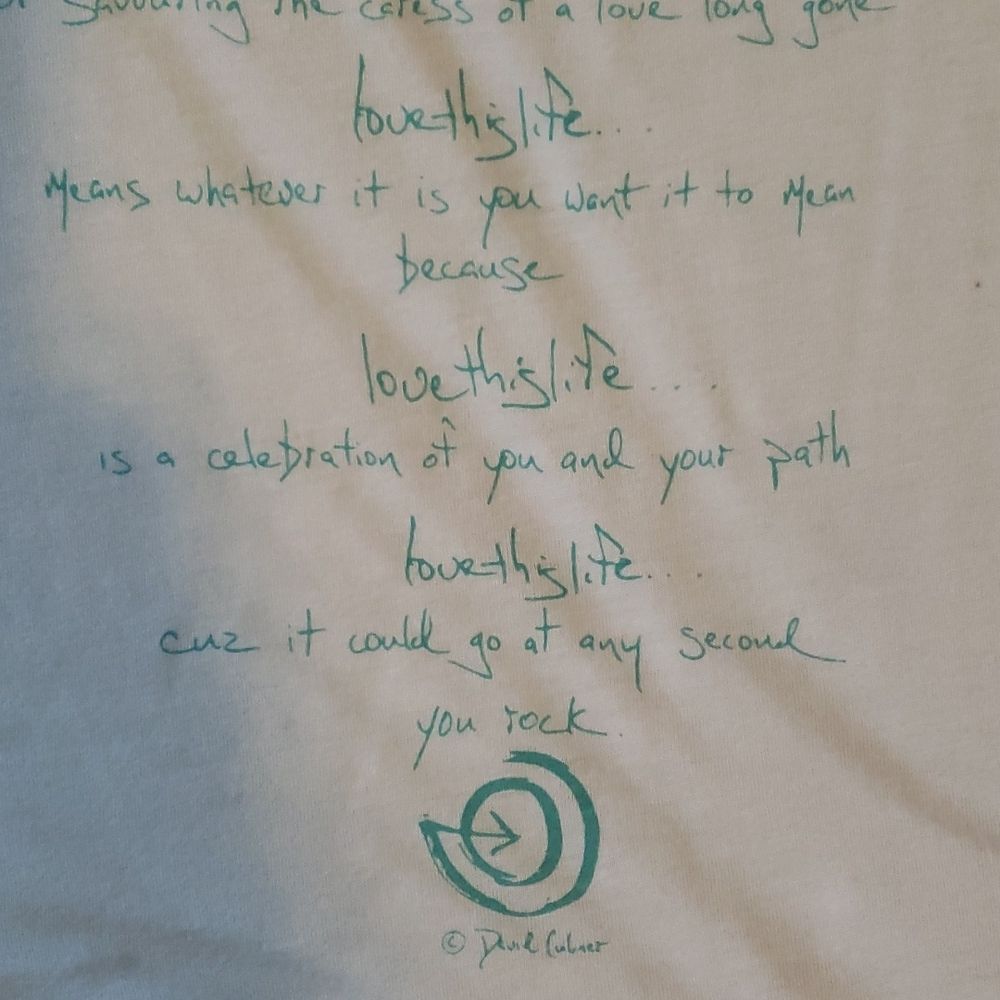 savouring the caress of a love long gone
lovethislife....
Means whatever it is you want it to Mean
because
lovethislife....
is a celebration of you and your path
lovethislife....
cuz it could go at any second
you rock.
© David